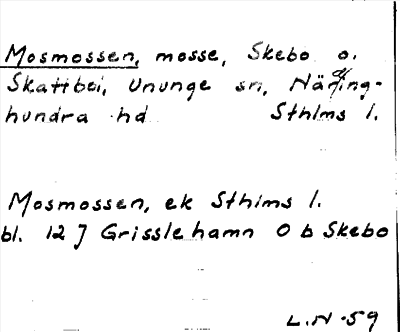 Mosmossen, mosse, Skebo o.
Skattbol, Ununge sn, Närding-
hundra hd Sthlms l.
Mosmossen, ek Sthlms l.
bl. 12 J Grisslehamn O b Skebo
L.N -59